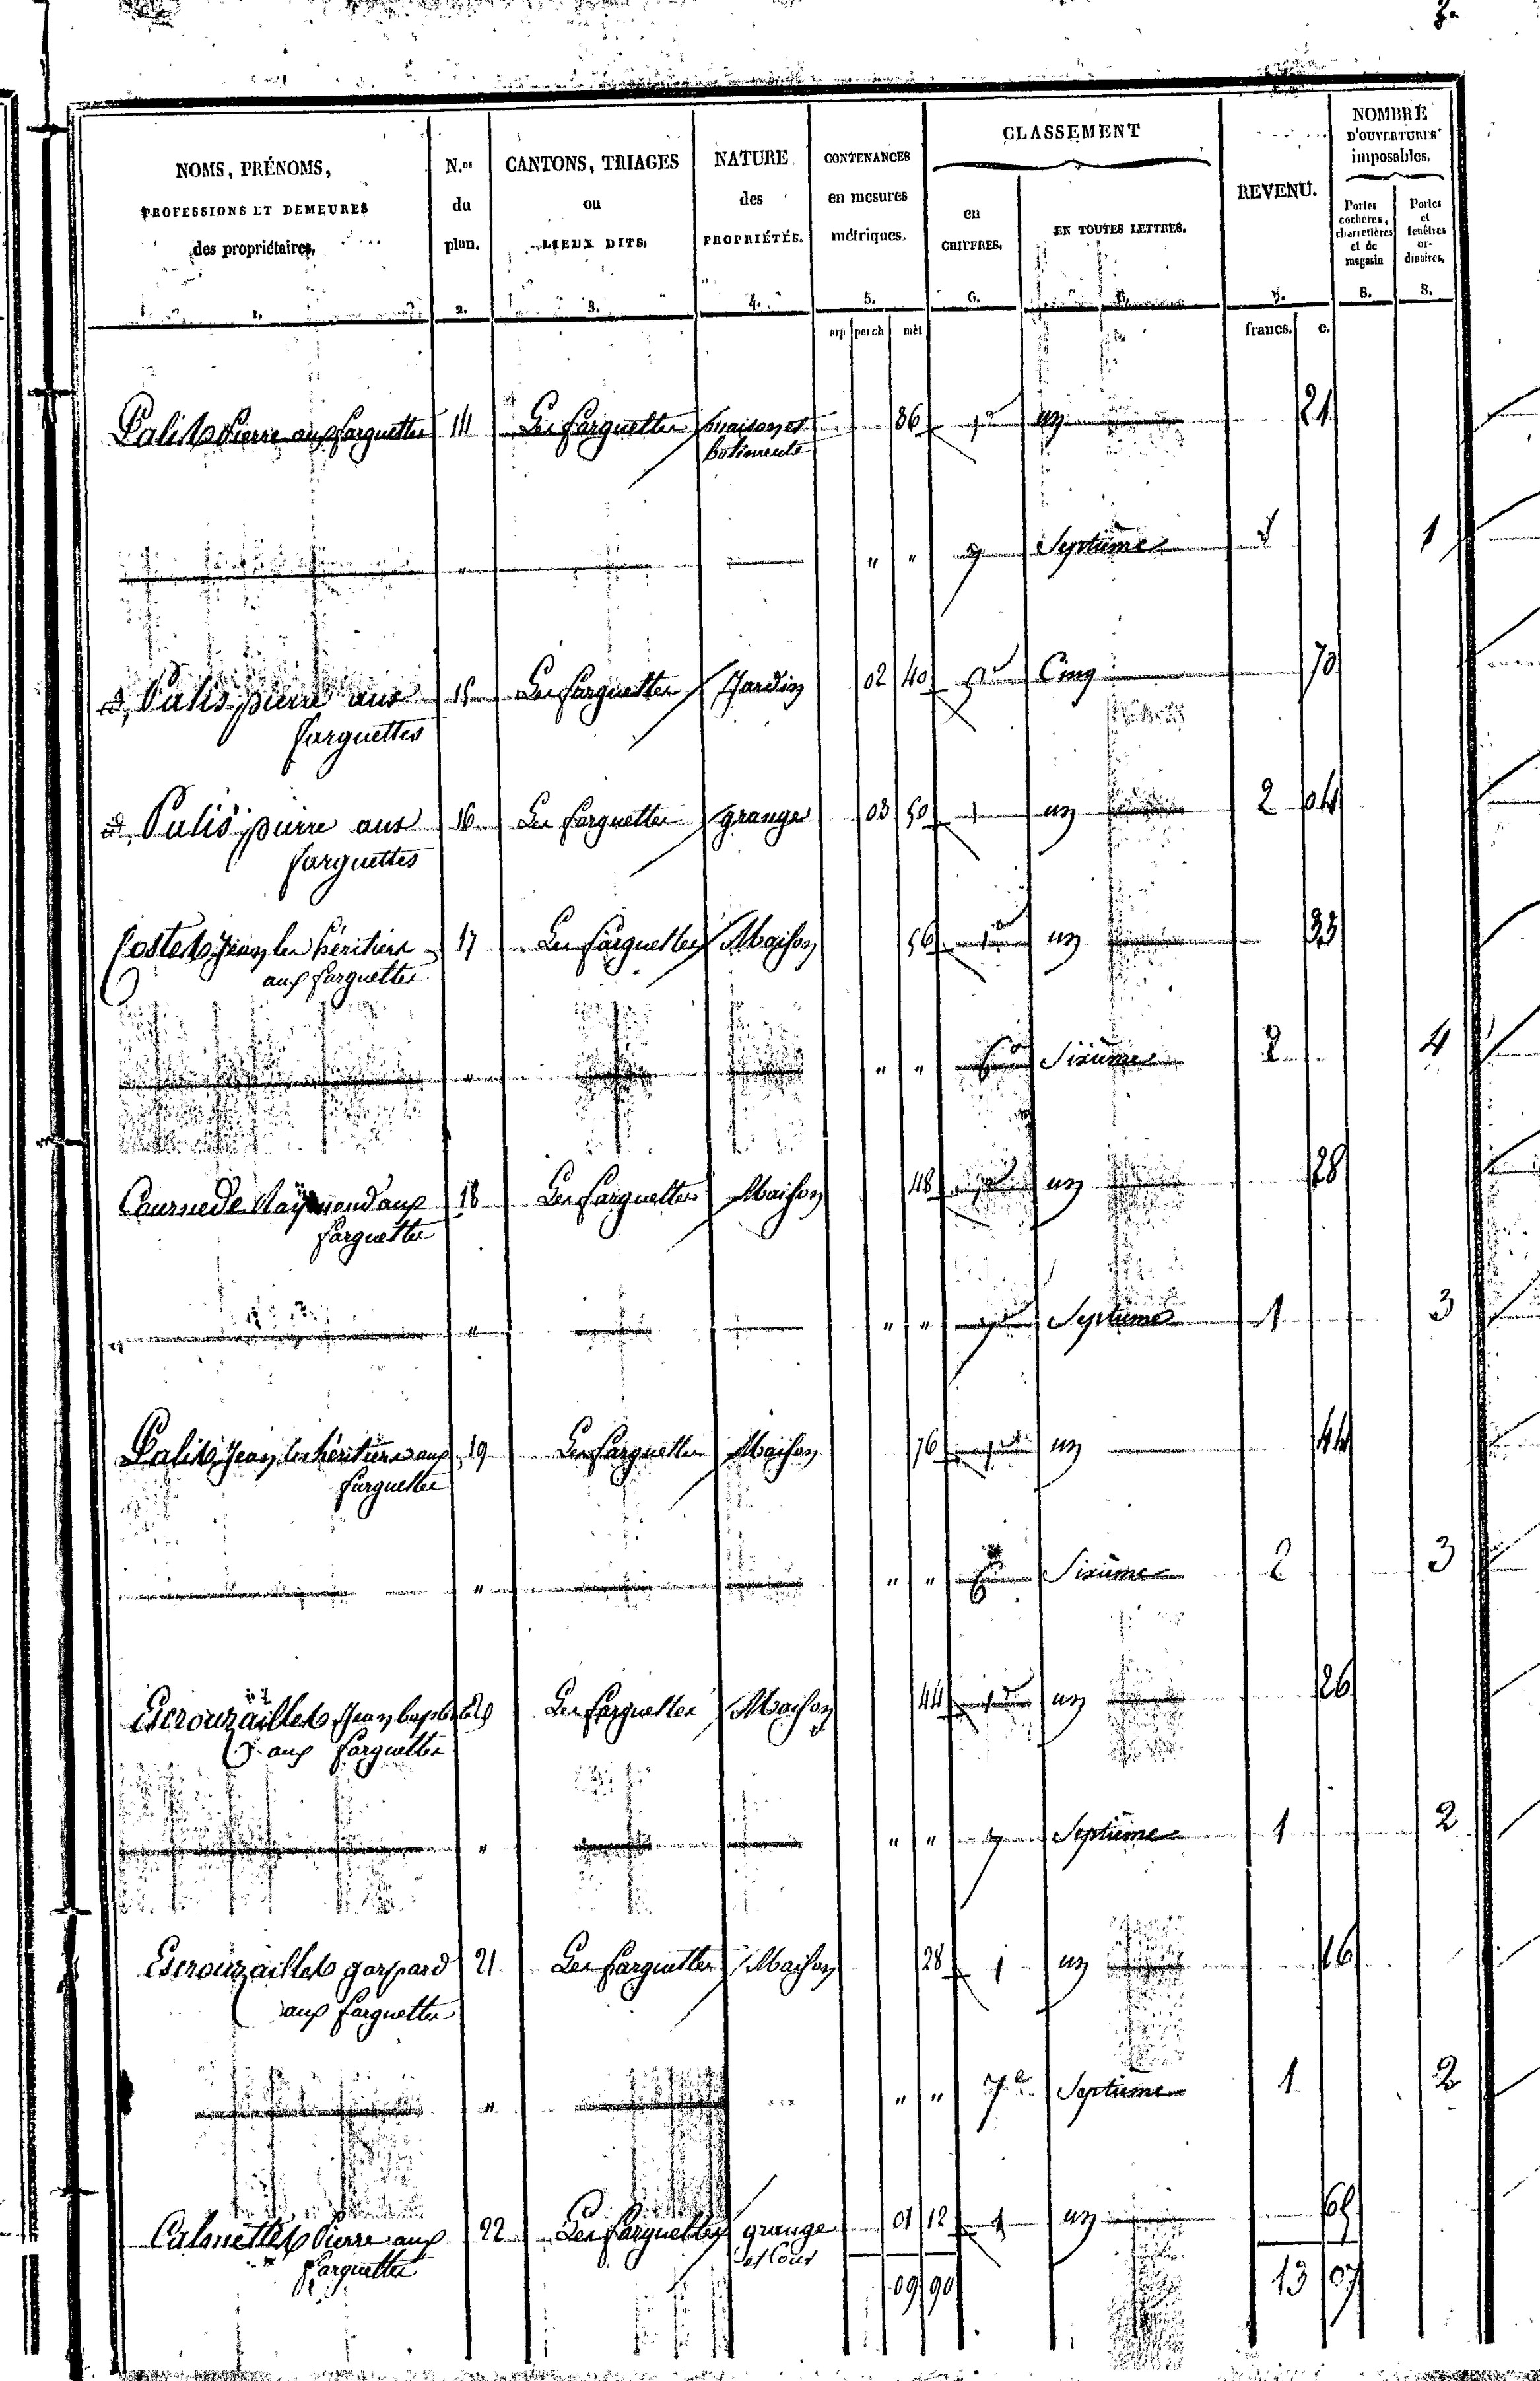 3.
NOMS, PRÉNOMS, PROFESSIONS ET DEMEURES des propriétaires. N.os du plan. CANTONS, TRIAGES ou LIEUX DITS. NATURE des PROPRIÉTÉS. CONTENANCES en mesures métriques. CLASSEMENT en CHIFFRES. EN TOUTES LETTRES. REVENU. NOMBRE D'OUVERTURES imposables. Portes cochères, charretières et de magasin Portes et fenêtres ordinaires.
1. 2. 3. 4. 5. 6. 7. 8. 8.
arp perch mèt francs. c.
Palis Pierre aux farguettes 14 Les farguettes maison et 86 1e un 21
batiments
" " " 7 Septième 1
id, Palis pierre aux 15 Les farguettes Jardin 02 40 5e Cinq 70
farguettes
id, Palis pierre aux 16 Les farguettes grange 03 50 1 un 2 04
farguettes
Costes Jean les héritiers 17 Les farguettes Maison 56 1e un 33
aux farguettes
" " " 6e Sixième 2 4
Cournede Raÿmond aux 18 Les farguettes Maison 48 1e un 28
farguettes
" " " 7e Septième 1 3
Palis Jean les héritiers aux 19 Les farguettes Maison 76 1e un 44
farguettes
" " " 6e Sixième 2 3
Escrouzailles Jean baptiste 20 Les farguettes Maison 44 1e un 26
aux farguettes
" " " 7 Septième 1 2
Escrouzailles gaspard 21 Les farguettes Maison 28 1 un 16
aux farguettes
" " " 7e Septième 1 2
Calmettes Pierre aux 22 Les farguettes grange 01 12 1 un 65
farguettes et Cour
09 90 13 07